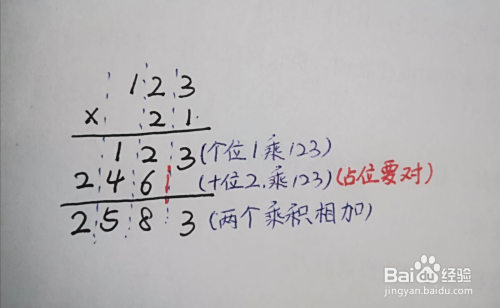 123
× 21
123(个位1乘123)
246(十位2,乘123)(占位要对)
2583(两个乘积相加)
Baidu经验
jingyan.baidu.com